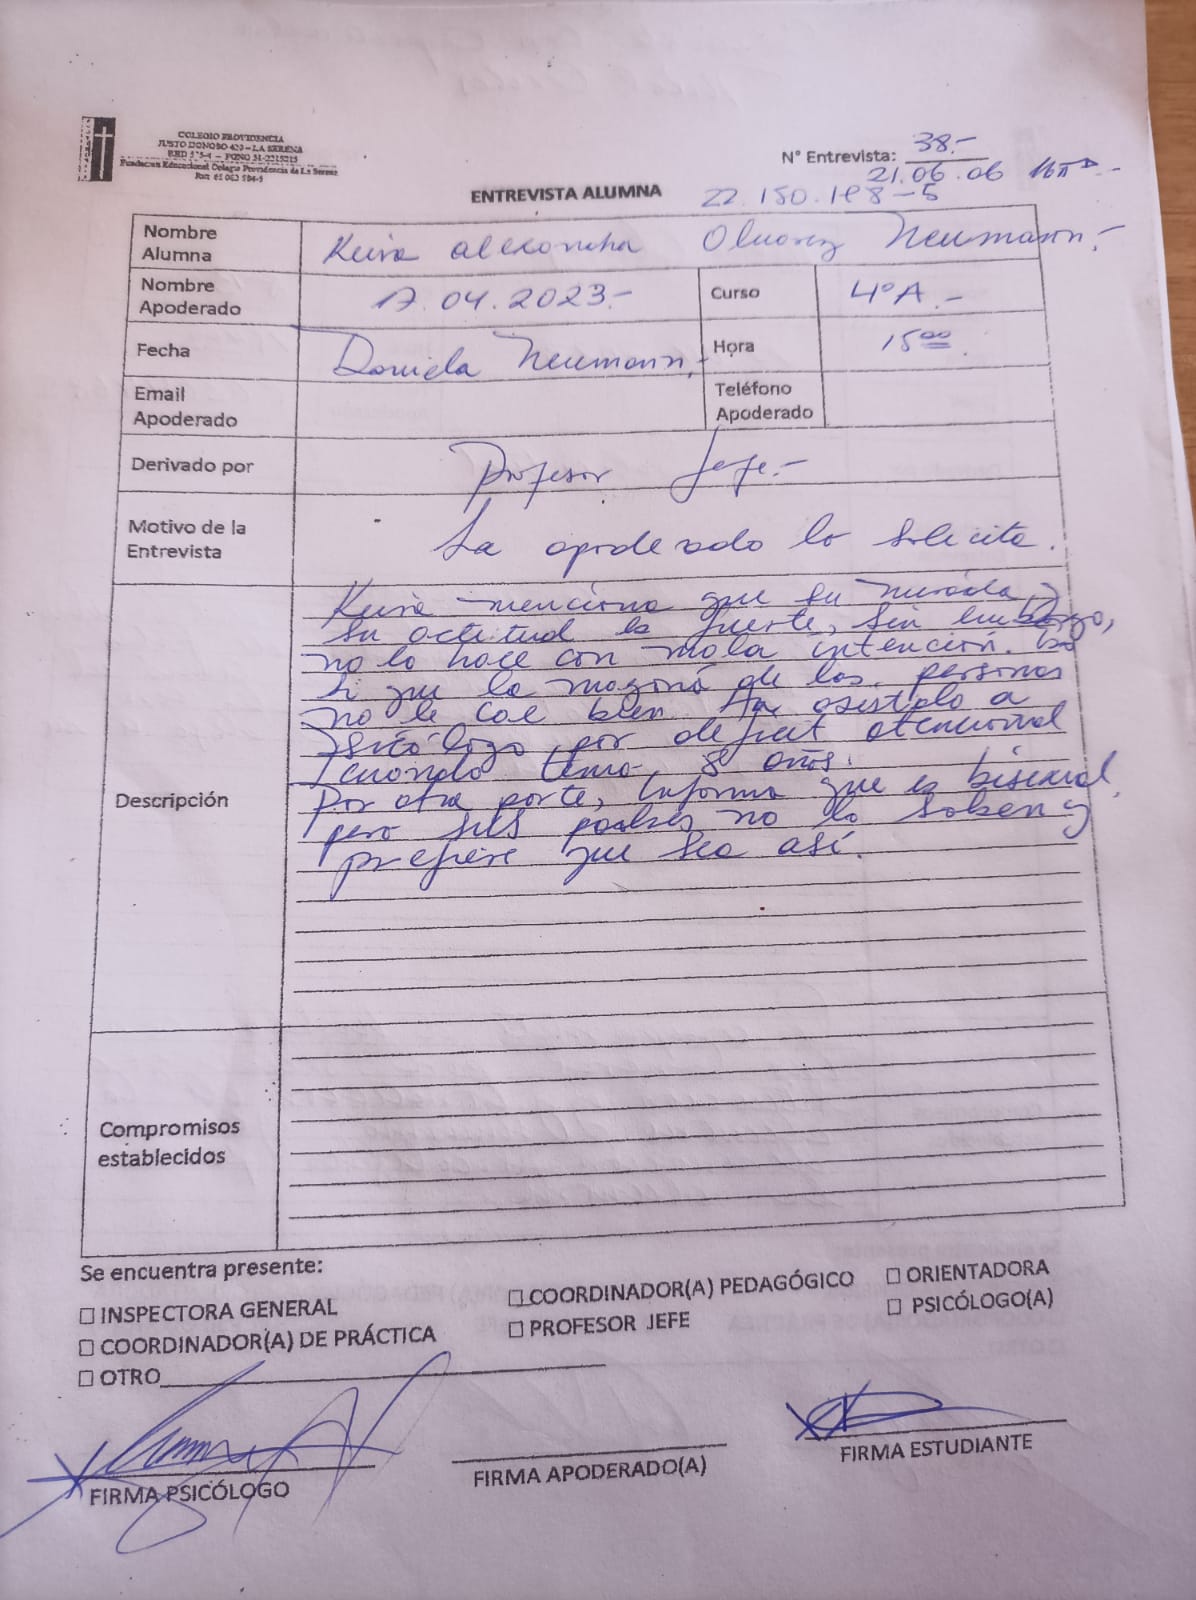 COLEGIO PROVIDENCIA
JUSTO DONOSO 420 – LA SERENA
Fundación Educacional Colegio Providencia de La Serena
N° Entrevista: 38.-
21.06.06
ENTREVISTA ALUMNA
Nombre Alumna
Neumann.-
Nombre Apoderado 17.04.2023.- Curso 4°A.-
Fecha Daniela Neumann.- Hora 15:00.
Email Apoderado Teléfono Apoderado
Derivado por Profesor Jefe.-
Motivo de la Entrevista La apoderado lo solicita.
Descripción
menciona que su mirada y
su actitud es fuerte, sin embargo,
no lo hace con mala intención.
que la mayoría de las personas
no le cae bien. Ha asistido a
psicólogo por deficit atencional
cuando tenía 8 años.
Por otra parte, informa que es bisexual,
pero sus padres no lo saben y
prefiere que sea así.
Compromisos establecidos
Se encuentra presente:
☐ INSPECTORA GENERAL ☐ COORDINADOR(A) PEDAGÓGICO ☐ ORIENTADORA
☐ COORDINADOR(A) DE PRÁCTICA ☐ PROFESOR JEFE ☐ PSICÓLOGO(A)
☐ OTRO
FIRMA PSICÓLOGO FIRMA APODERADO(A) FIRMA ESTUDIANTE